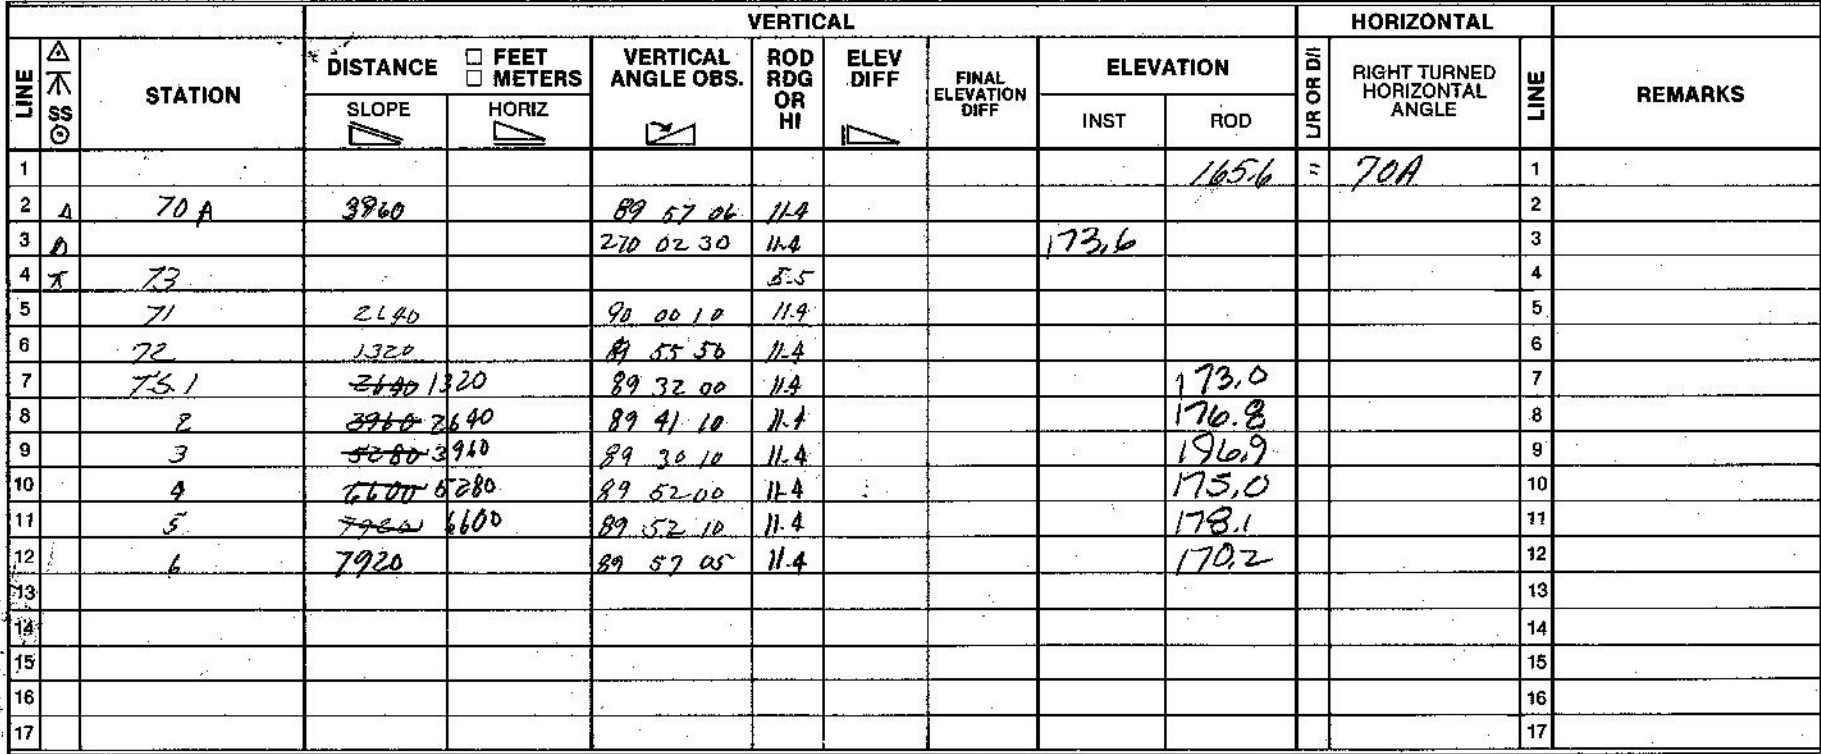 VERTICAL HORIZONTAL
LINE SS STATION * DISTANCE FEET METERS SLOPE HORIZ VERTICAL ANGLE OBS. ROD RDG OR HI ELEV DIFF FINAL ELEVATION DIFF ELEVATION INST ROD L/R OR D/I RIGHT TURNED HORIZONTAL ANGLE LINE REMARKS
1 165.6 = 70A 1
2 70A 3960 89 57 06 11.4 2
3 270 02 30 11.4 173.6 3
4 73 5.5 4
5 71 2640 90 00 10 11.4 5
6 72 1320 89 55 50 11.4 6
7 75.1 2640 1320 89 32 00 11.4 173.0 7
8 2 3960 2640 89 41 10 11.4 176.8 8
9 3 5280 3960 89 30 10 11.4 196.9 9
10 4 6600 5280 89 52 00 11.4 175.0 10
11 5 7920 6600 89 52 10 11.4 178.1 11
12 6 7920 89 57 05 11.4 170.2 12
13 13
14 14
15 15
16 16
17 17